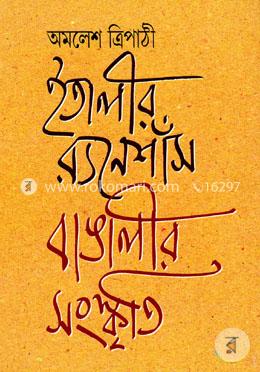 অমলেশ ত্রিপাঠী
ইতালীর
র‍্যনেশাঁস
www.rokomari.com 16297
বাঙালীর
সংস্কৃতি